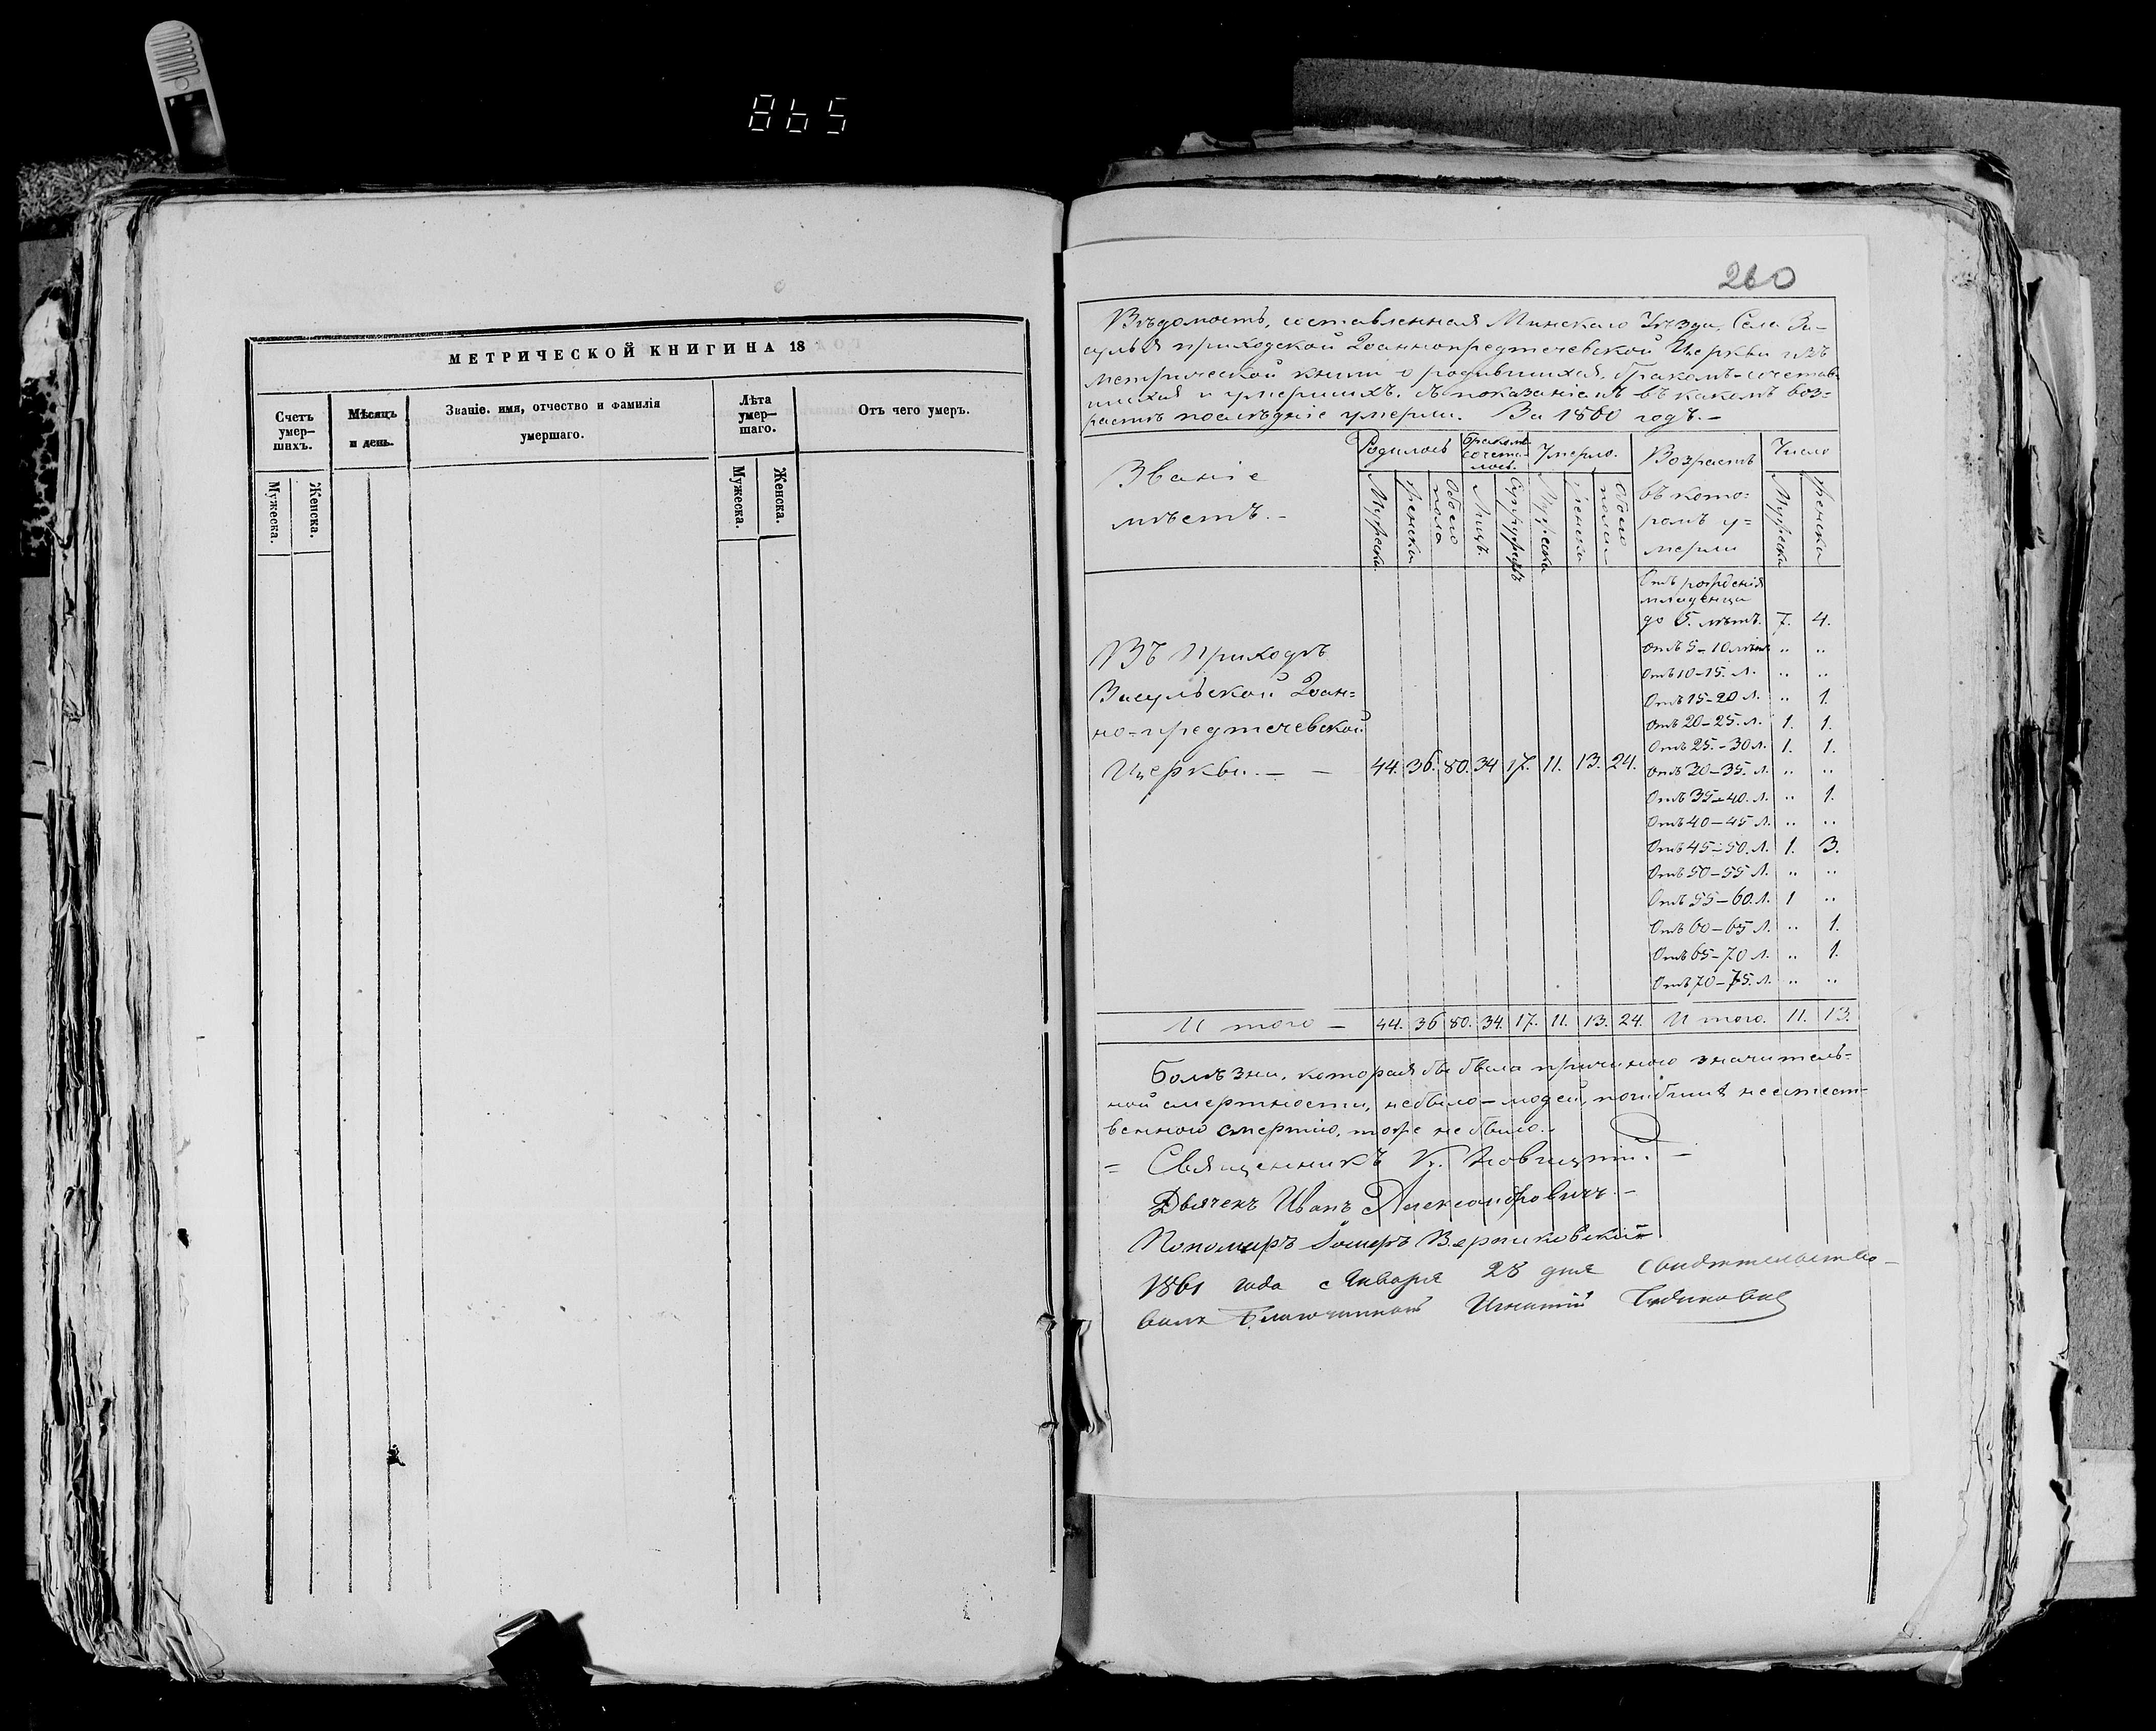 865
МЕТРИЧЕСКОЙ КНИГИ НА 18
Счетъ умер-шихъ.
Мѣсяцъ и день.
Званіе. имя, отчество и фамилія умершаго.
Лѣта умер-шаго.
Отъ чего умеръ.
Мужеска.
Женска.
Мужеска.
Женска.
260
Вѣдомость, составленная Минскаго Уѣзда, Села За-
сулья приходской Іоаннопредтечевской Церкви изъ
метрической книги о родившихся, бракомъ-сочетав-
шихся и умершихъ, съ показаніемъ въ какомъ воз-
растѣ послѣдніе умерли. За 1860 годъ.-
Званіе
мѣстъ.-
Родилось
Бракомъ сочета-лось.
Умерло.
Возрастъ
въ кото-
ромъ у-
мерли
Число
Мужеска.
Женска
Обоего пола
Лицъ.
Супружествъ
Мужеска
Женска
Обоего пола
Мужеска
Женска
Отъ рожденія
младенца
до 5. лѣтъ. 7. 4.
Отъ 5-10 лѣтъ „ „
Отъ 10-15. л. „ „
Отъ 15-20 л. „ 1.
Отъ 20-25. л. 1. 1.
Отъ 25.-30 л. 1. 1.
Отъ 30-35. л. „ „
Отъ 35-40. л. „ 1.
Отъ 40-45 л. „ „
Отъ 45-50. л. 1. 3.
Отъ 50-55 л. „ „
Отъ 55-60. л. 1 „
Отъ 60-65 л. „ 1.
Отъ 65-70 л. „ 1.
Отъ 70-75. л. „ „
Въ Приходѣ
Засульской Іоан-
но-предтечевской
Церкви.- - 44. 36. 80. 34 17. 11. 13. 24.
И того - 44. 36 80. 34. 17. 11. 13. 24. И того. 11. 13.
Болѣзни, которая бы была причиною значитель-
ной смертности, небыло-людей, погибшихъ неестест-
венною смертію, тоже не было.-
= Священникъ К. Новицкій.-
Дьячекъ Иванъ Александровичъ.-
Пономарь Верниковскій
1861 года Января 28 дня свидѣтельство-
валъ Благочинный Игнатій